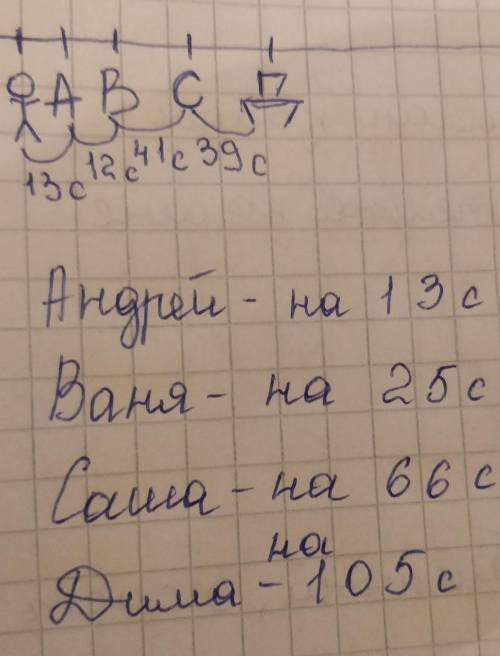 А В С Д
13с 12с 41с 39с
Андрей - на 13с
Ваня - на 25с
Саша - на 66с
Дима - на 105с